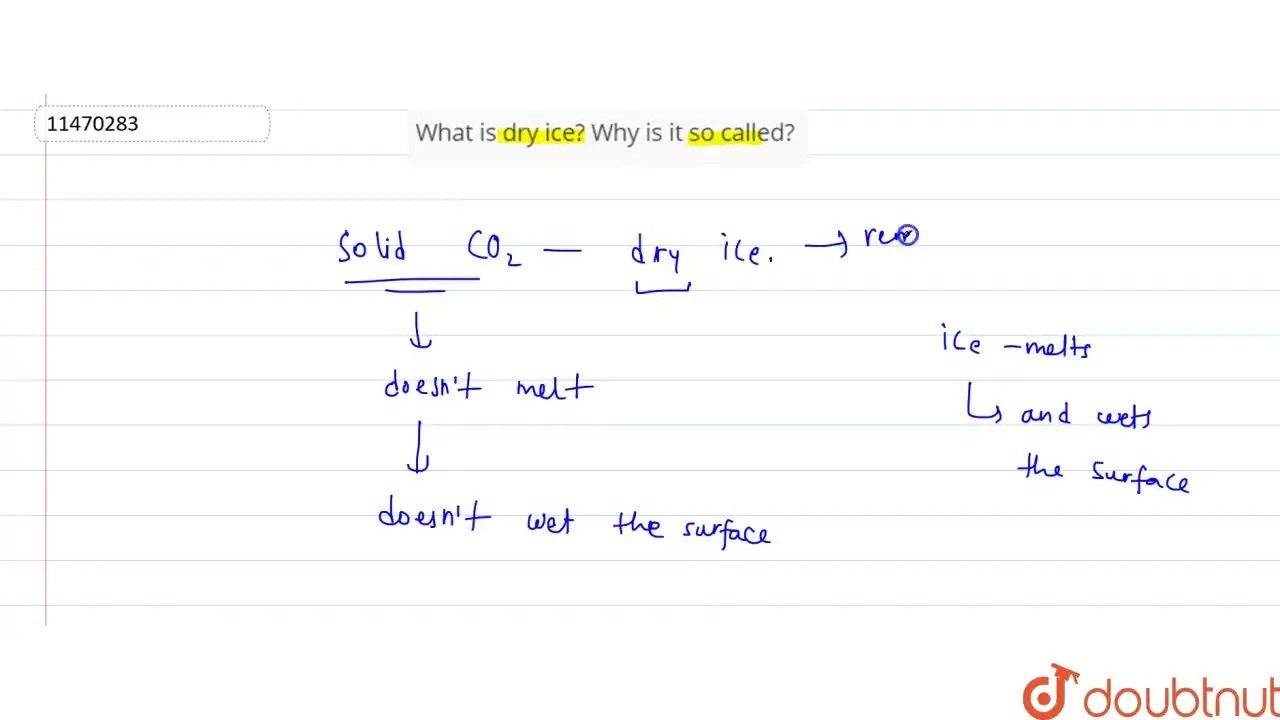 11470283
What is dry ice? Why is it so called?
Solid CO₂ — dry ice. →
ice - melts
doesn't melt
and wets
the surface
doesn't wet the surface
doubtnut